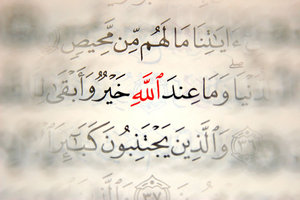 ءَايَٰتِنَا مَا لَهُم مِّن مَّحِيصٍ
دُّنْيَا ۖ وَمَا عِندَ ٱللَّهِ خَيْرٌ وَأَبْقَىٰ
٣٦ وَٱلَّذِينَ يَجْتَنِبُونَ كَبَٰٓئِرَ
٣٧ وَٱلَّذِينَ